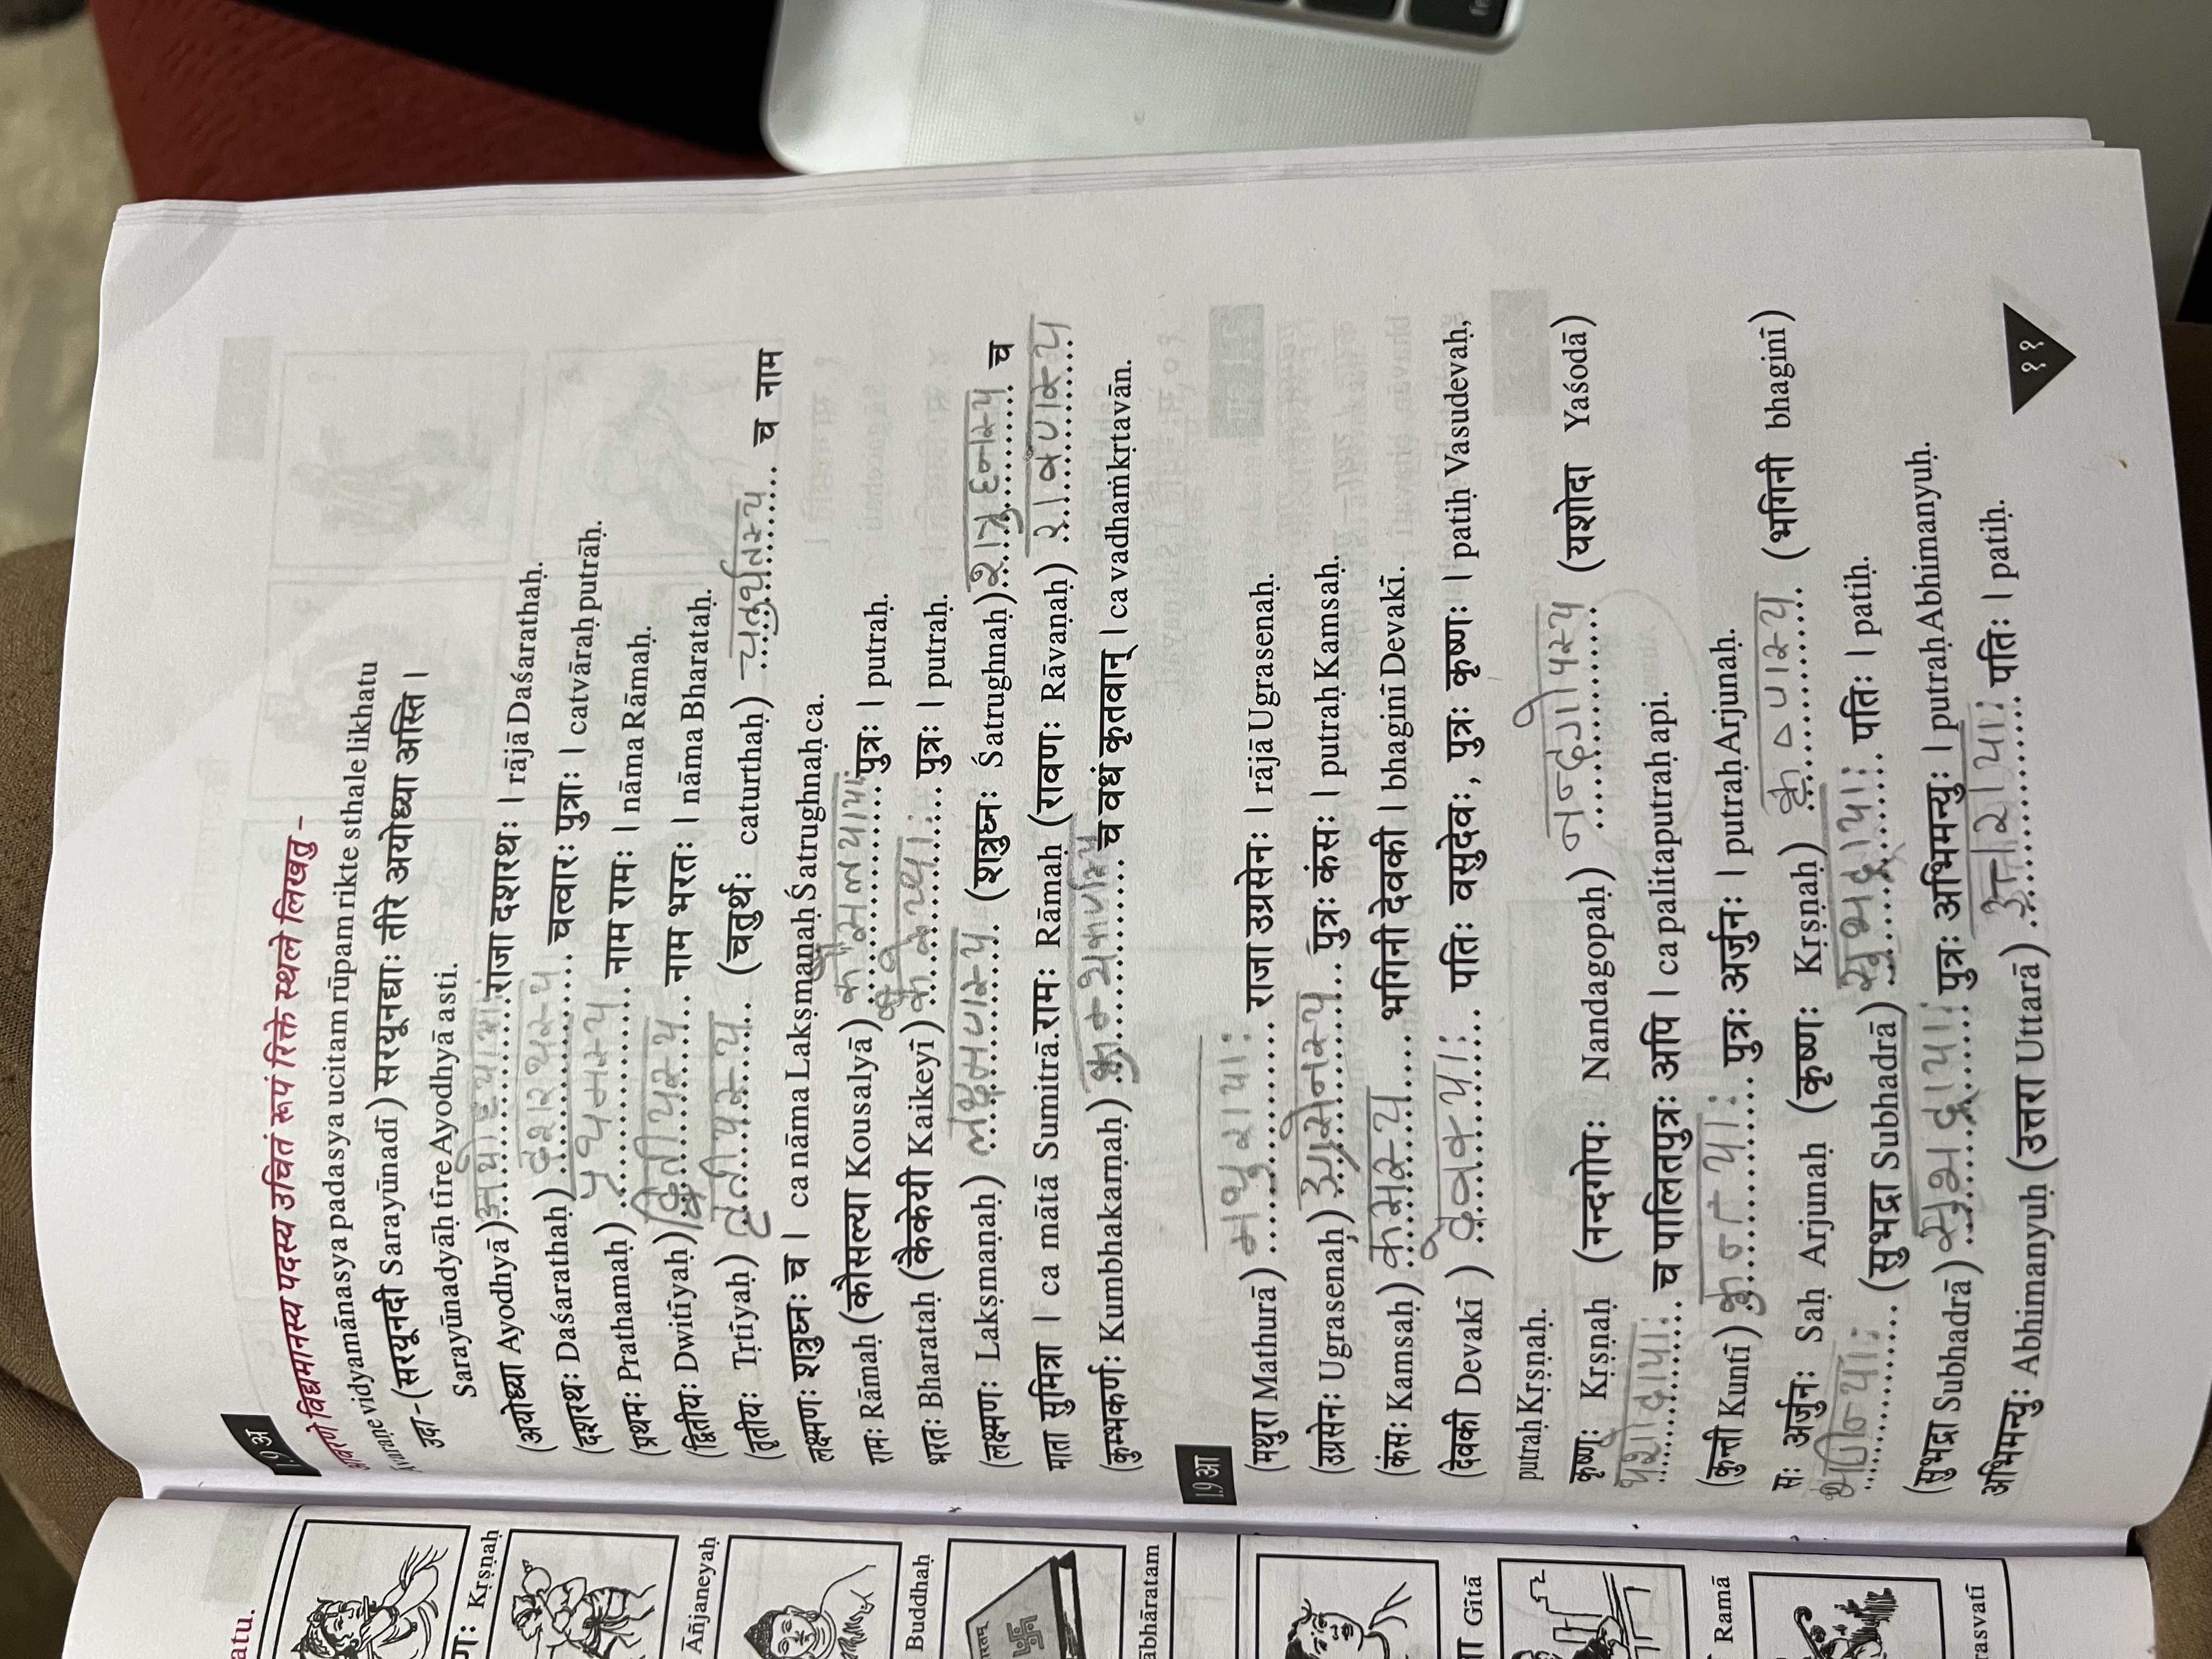 atu.
णः Kṛṣṇaḥ
Āñjaneyaḥ
Buddhaḥ
ābhāratam
Gītā
Ramā
rasvatī
1.9 अ
आवरणे विद्यमानस्य पदस्य उचितं रूपं रिक्ते स्थले लिखतु –
Āvaraṇe vidyamānasya padasya ucitam rūpam rikte sthale likhatu
उदा – (सरयूनदी Sarayūnadī) सरयूनद्याः तीरे अयोध्या अस्ति ।
Sarayūnadyāḥ tīre Ayodhyā asti.
(अयोध्या Ayodhyā) अयोध्यायाः राजा दशरथः । rājā Daśarathaḥ.
(दशरथः Daśarathaḥ) दशरथस्य चत्वारः पुत्राः । catvāraḥ putrāḥ.
(प्रथमः Prathamaḥ) प्रथमस्य नाम रामः । nāma Rāmaḥ.
(द्वितीयः Dwitīyaḥ) द्वितीयस्य नाम भरतः । nāma Bharataḥ.
(तृतीयः Tṛtīyaḥ) तृतीयस्य (चतुर्थः caturthaḥ) चतुर्थतस्य च नाम
लक्ष्मणः शत्रुघ्नः च । ca nāma Lakṣmaṇaḥ Śatrughnaḥ ca.
रामः Rāmaḥ (कौसल्या Kousalyā) कौसलयायाः पुत्रः । putraḥ.
भरतः Bharataḥ (कैकेयी Kaikeyī) कैकेय्याः पुत्रः । putraḥ.
(लक्ष्मणः Lakṣmaṇaḥ) लक्ष्मणस्य (शत्रुघ्नः Śatrughnaḥ) शत्रुघ्नस्य च
माता सुमित्रा । ca mātā Sumitrā. रामः Rāmaḥ (रावणः Rāvaṇaḥ) रावणस्य
(कुम्भकर्णः Kumbhakarṇaḥ) कुम्भकर्णस्य च वधं कृतवान् । ca vadhaṁ kṛtavān.
1.9 आ
(मथुरा Mathurā) मथुरायाः राजा उग्रसेनः । rājā Ugrasenaḥ.
(उग्रसेनः Ugrasenaḥ) उग्रसेनस्य पुत्रः कंसः । putraḥ Kamsaḥ.
(कंसः Kamsaḥ) कंसस्य भगिनी देवकी । bhaginī Devakī.
(देवकी Devakī ) देवक्याः पतिः वसुदेवः, पुत्रः कृष्णः । patiḥ Vasudevaḥ,
putraḥ Kṛṣṇaḥ.
कृष्णः Kṛṣṇaḥ (नन्दगोपः Nandagopaḥ) नन्दगोपस्य (यशोदा Yaśodā)
यशोदायाः च पालितपुत्रः अपि । ca palitaputraḥ api.
(कुन्ती Kuntī) कुन्त्याः पुत्रः अर्जुनः । putraḥ Arjunaḥ.
सः अर्जुनः Saḥ Arjunaḥ (कृष्णः Kṛṣṇaḥ) कृष्णस्य (भगिनी bhaginī)
भगिन्याः (सुभद्रा Subhadrā) सुभद्रायाः पतिः । patiḥ.
(सुभद्रा Subhadrā) सुभद्रायाः पुत्रः अभिमन्युः । putraḥ Abhimanyuḥ.
अभिमन्युः Abhimanyuḥ (उत्तरा Uttarā) उत्तरायाः पतिः । patiḥ.
११